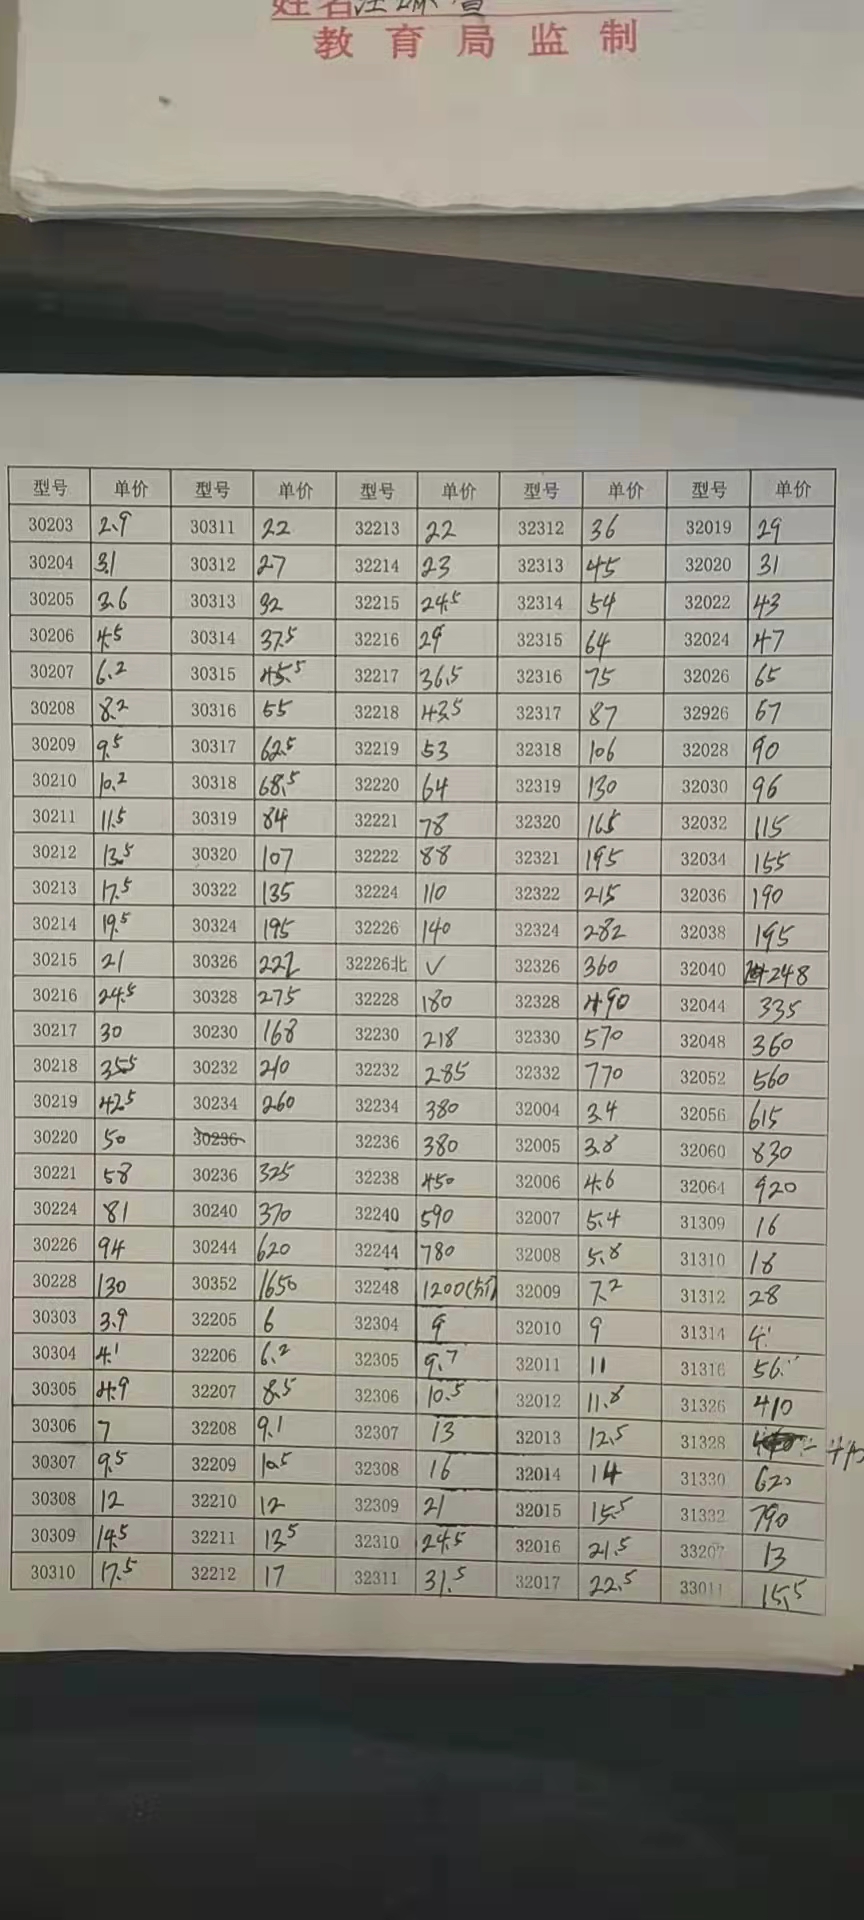 姓名汪
教育局监制
型号 单价 型号 单价 型号 单价 型号 单价 型号 单价
30203 2.9 30311 22 32213 22 32312 36 32019 29
30204 3.1 30312 27 32214 23 32313 45 32020 31
30205 3.6 30313 32 32215 24.5 32314 54 32022 43
30206 4.5 30314 37.5 32216 29 32315 64 32024 47
30207 6.2 30315 45.5 32217 36.5 32316 75 32026 65
30208 8.2 30316 55 32218 43.5 32317 87 32926 67
30209 9.5 30317 62.5 32219 53 32318 106 32028 90
30210 10.2 30318 68.5 32220 64 32319 130 32030 96
30211 11.5 30319 84 32221 78 32320 165 32032 115
30212 13.5 30320 107 32222 88 32321 195 32034 155
30213 17.5 30322 135 32224 110 32322 215 32036 190
30214 19.5 30324 195 32226 140 32324 282 32038 195
30215 21 30326 222 32226北 ✓ 32326 360 32040 248
30216 24.5 30328 275 32228 180 32328 490 32044 335
30217 30 30230 168 32230 218 32330 570 32048 360
30218 35.5 30232 210 32232 285 32332 770 32052 560
30219 42.5 30234 260 32234 380 32004 3.4 32056 615
30220 50 30236 32236 380 32005 3.8 32060 830
30221 58 30236 325 32238 450 32006 4.6 32064 920
30224 81 30240 370 32240 590 32007 5.4 31309 16
30226 94 30244 620 32244 780 32008 5.8 31310 18
30228 130 30352 1650 32248 1200 32009 7.2 31312 28
30303 3.9 32205 6 32304 9 32010 9 31314
30304 4.1 32206 6.2 32305 9.7 32011 11 31316 56
30305 4.9 32207 8.5 32306 10.5 32012 11.8 31326 410
30306 7 32208 9.1 32307 13 32013 12.5 31328
30307 9.5 32209 10.5 32308 16 32014 14 31330 620
30308 12 32210 12 32309 21 32015 15.5 31332 790
30309 14.5 32211 13.5 32310 24.5 32016 21.5 33207 13
30310 17.5 32212 17 32311 31.5 32017 22.5 33011 15.5